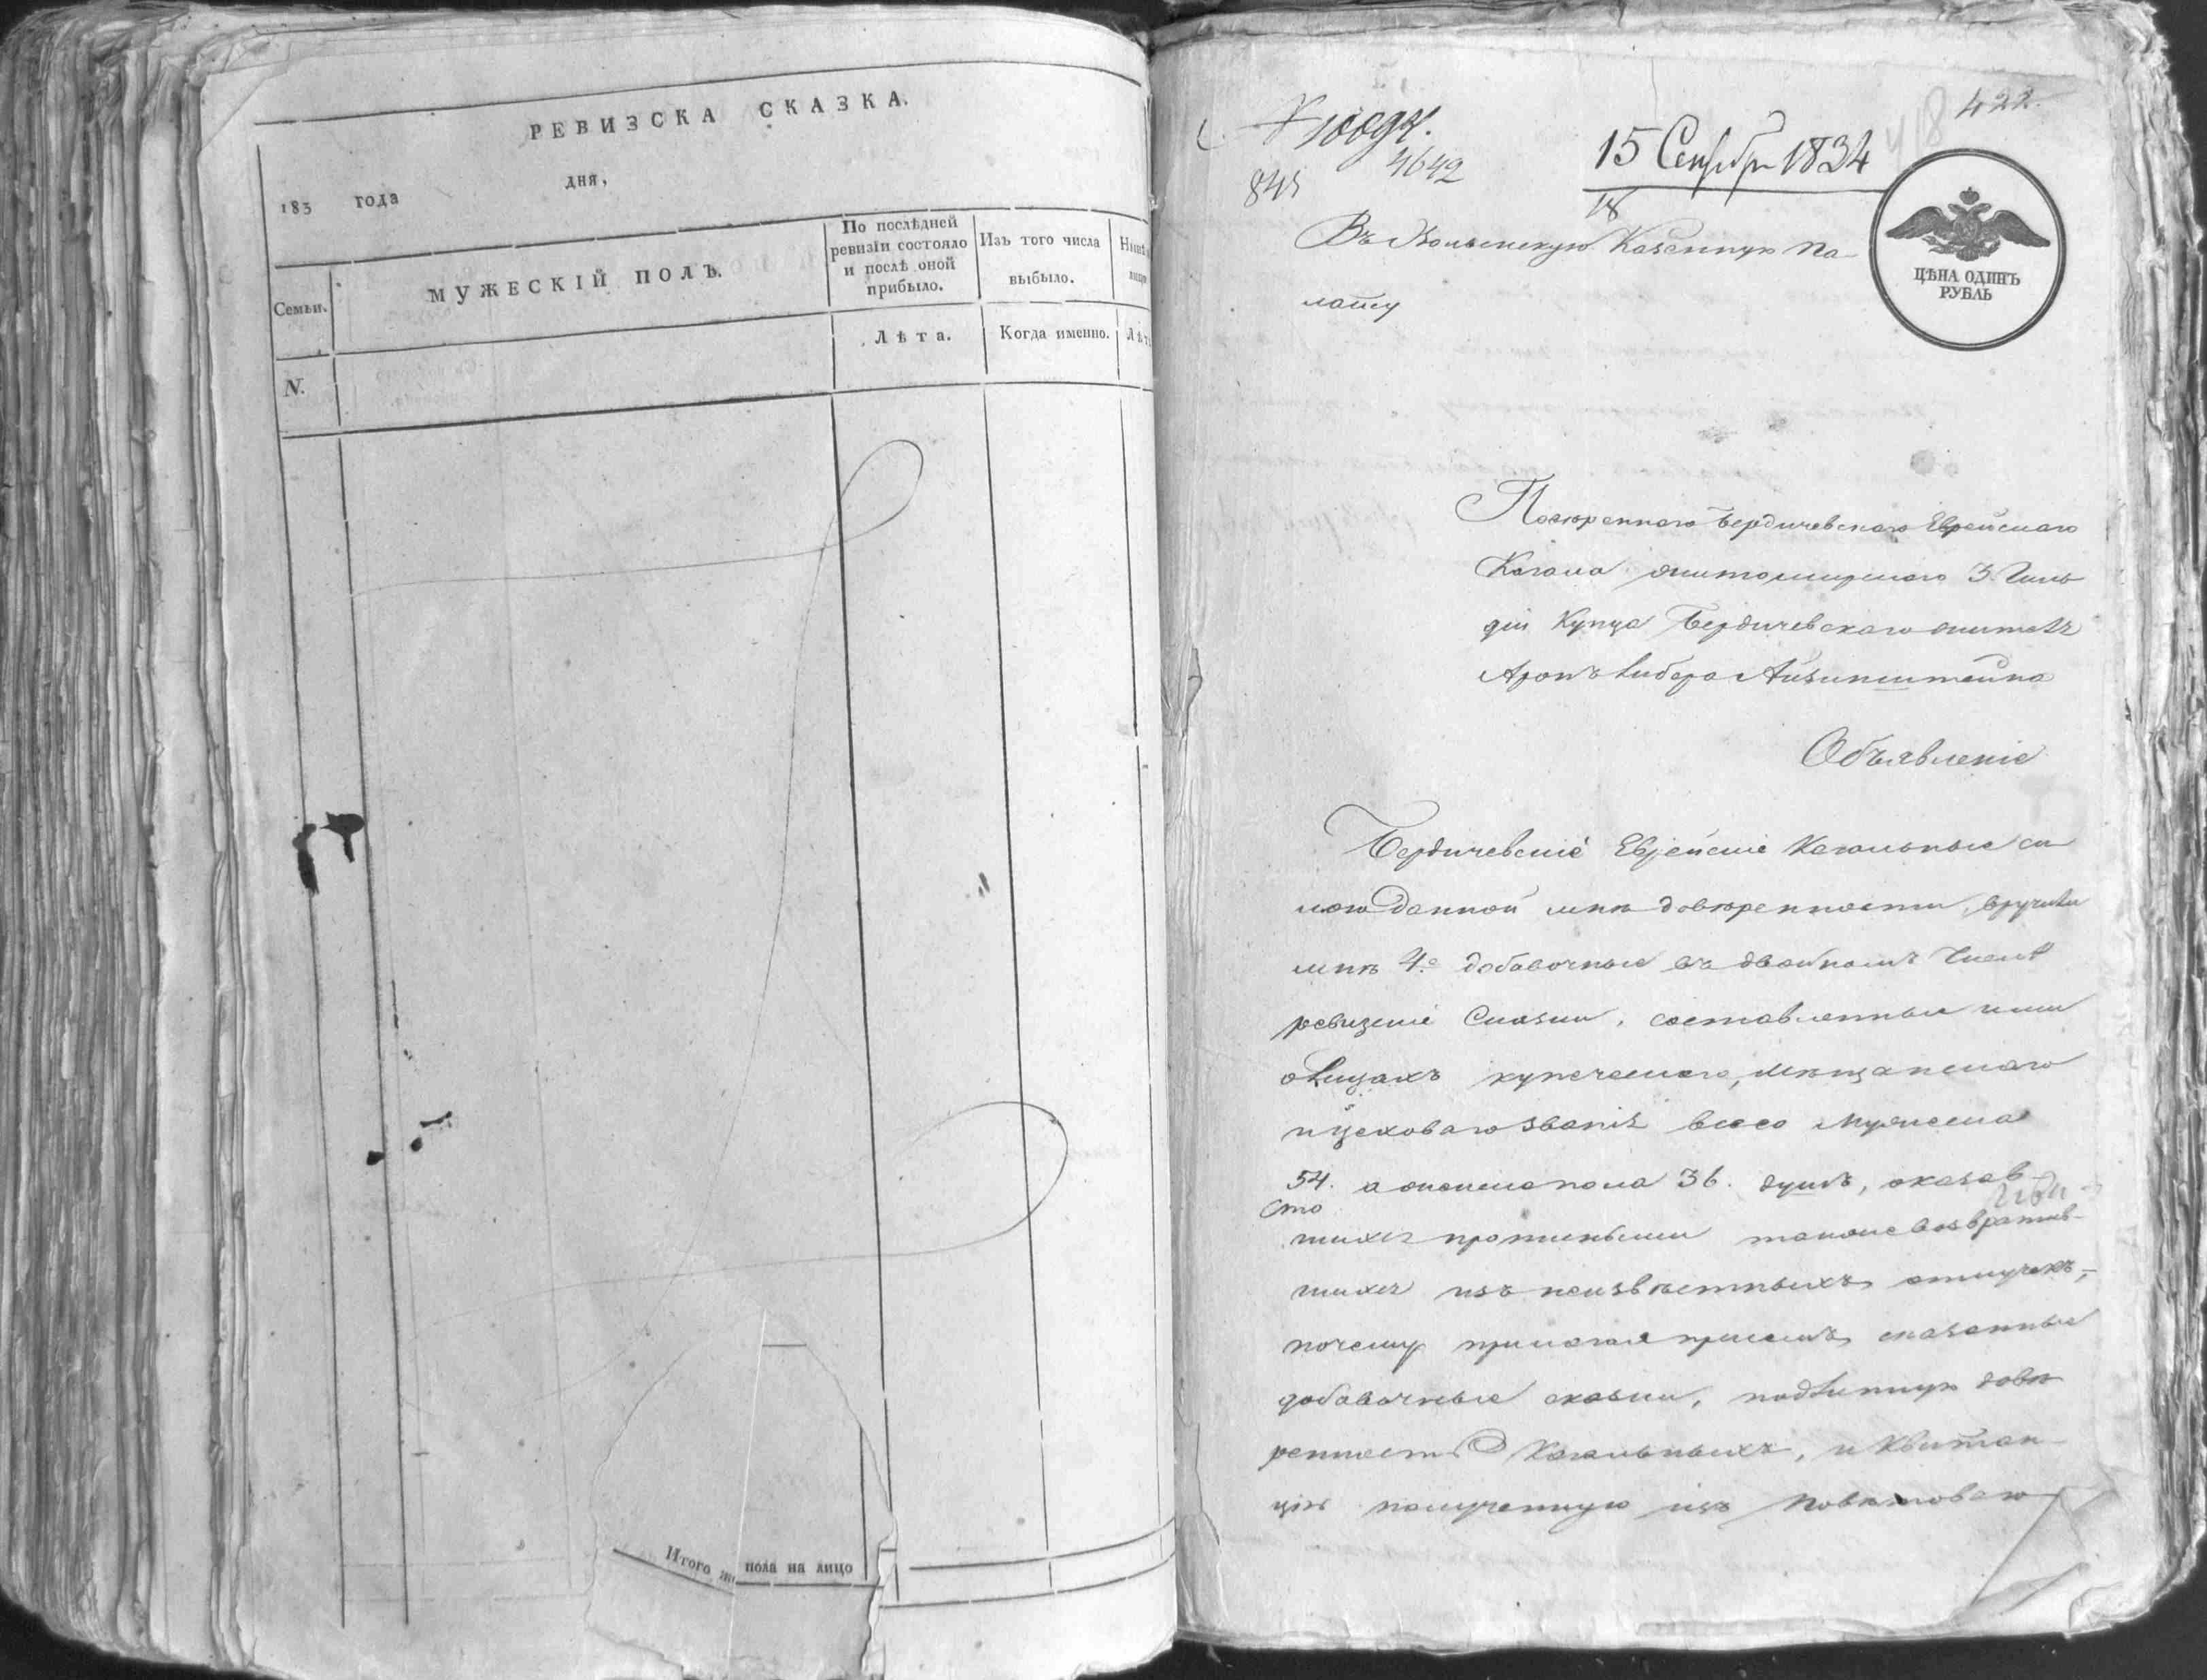 РЕВИЗСКА СКАЗКА.
183 года дня,
Семьи.
МУЖЕСКІЙ ПОЛЪ.
По послѣдней
ревизіи состояло
и послѣ оной
прибыло.
Изъ того числа
выбыло.
Лѣта.
Когда именно.
N.
Итого
пола на лицо
422.
418
15 Сентября 1834
18
4642
845
ЦѢНА ОДИНЪ
РУБЛЬ
Въ Волынскую Казенную Па-
лату
Повѣреннаго Бердичевскаго Еврейскаго
Кагала житомирскаго 3. Гиль
діи Купца Бердичевскаго жителя
Аронъ Либера Айзинштейна
Объявленіе
Бердичевскіе Еврейскіе Кагальные си
лою данной мнѣ довѣренности, вручили
мнѣ 4.е добавочные въ двойномъ Числѣ
ревизскіе Сказки, составленные ими
о Лицахъ купеческаго, мѣщанскаго
и цеховаго званія всего Мужеска
54. а женска пола 36. душъ, оказав-
шихся прописными также возвратив-
шихся изъ неизвѣстныхъ отлучекъ,
почему прилагая присемъ сказанные
добавочные сказки, подлинную довѣ
ренность Кагальныхъ, и Квитан-
цію полученную изъ Повѣтоваго